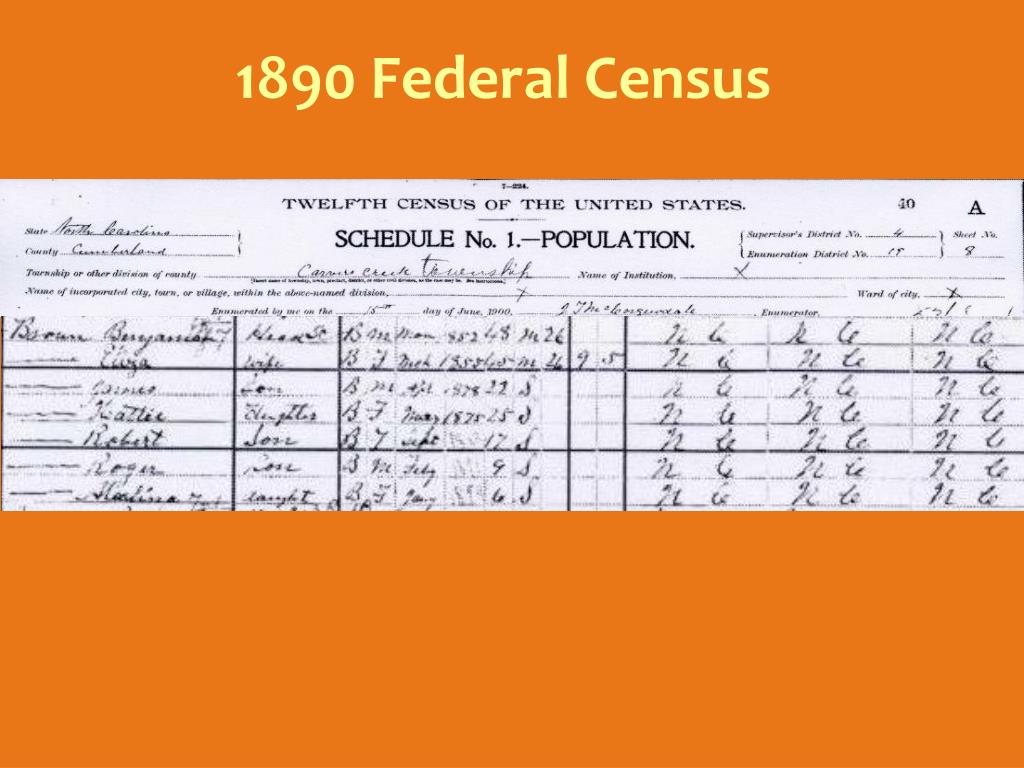 1890 Federal Census
7—224.
TWELFTH CENSUS OF THE UNITED STATES.
40 A
State North Carolina
County Cumberland
SCHEDULE No. 1.—POPULATION.
Supervisor's District No. 4
Enumeration District No. 19
Sheet No.
8
Township or other division of county Carvers Creek Township Name of Institution, X
Name of incorporated city, town, or village, within the above-named division, X Ward of city, X
Enumerated by me on the 15th day of June, 1900, Enumerator.
Brown Benjamin F Head B M 1852 48 M 26 N C N C N C
Wife B F Mch 1855 45 M 26 9 5 N C N C N C
James Son B M Apl 1878 22 S N C N C N C
Hattie Daughter B F May 1875 25 S N C N C N C
Robert Son B F Sept 17 S N C N C N C
Roger Son B M Feby 9 S N C N C N C
B F Jany 6 S N C N C N C